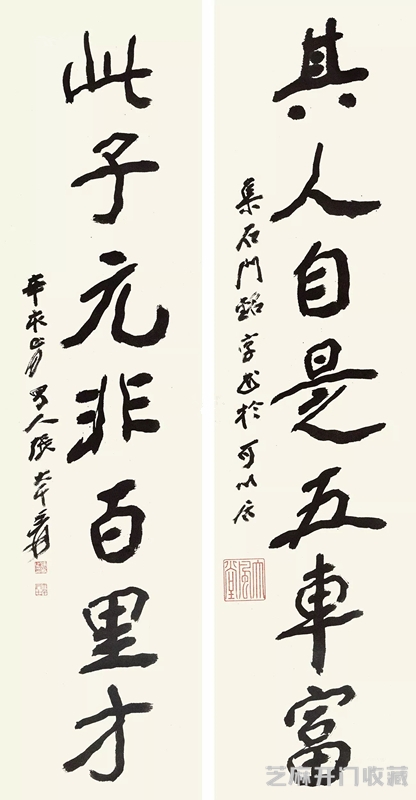 其人自是五車富
集石門銘字書於可以居
大風堂
此子元非百里才
辛亥正月蜀人張大千爰
芝麻开门收藏